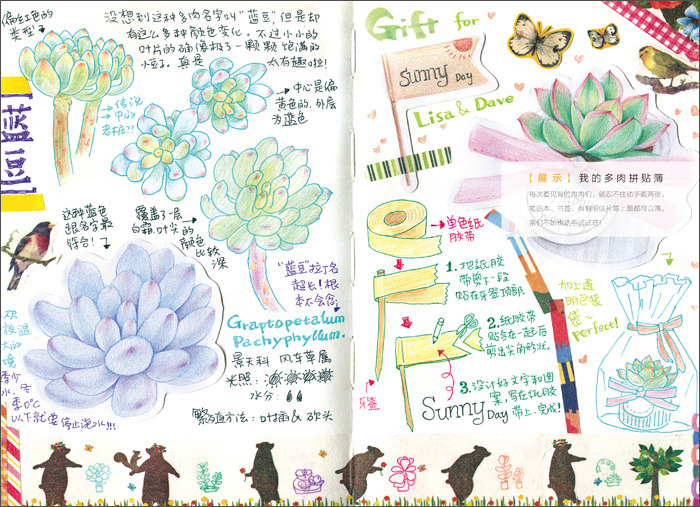 偏红色的
类型
没想到这种多肉名字叫“蓝豆”,但是却
有这么多种颜色变化。不过小小的
叶片的确像极了一颗颗饱满的
小豆子。真是
太有趣啦!
传说
中的
老桩??
中心是偏
黄色的,外层
为蓝色
蓝豆
这种蓝色
跟名字最
符合!
覆盖了一层
白霜,叶尖的
颜色
比较
深
“蓝豆”拉丁名
超长!根
本不会念
Graptopetalum
Pachyphyllum.
景天科 风车草属
光照:
水分:
季0℃
以下就要停止浇水!!!
繁殖方法:叶插&砍头
Gift for
Sunny Day
Lisa & Dave
【展示】我的多肉拼贴簿
每次看见我的肉肉们,就忍不住动手画两张,
笔记本、书签、自制明信片等上面都可以画,
亲们不妨也动手试试哈!
单色纸
胶带
1.把纸胶
带剪下一段
贴在牙签顶部.
2.纸胶带
贴合在一起后
剪出尖角形状.
牙签
3.设计好文字和图
案,写在纸胶
带上,完成!
Sunny Day
加上透
明包装
袋~
perfect!